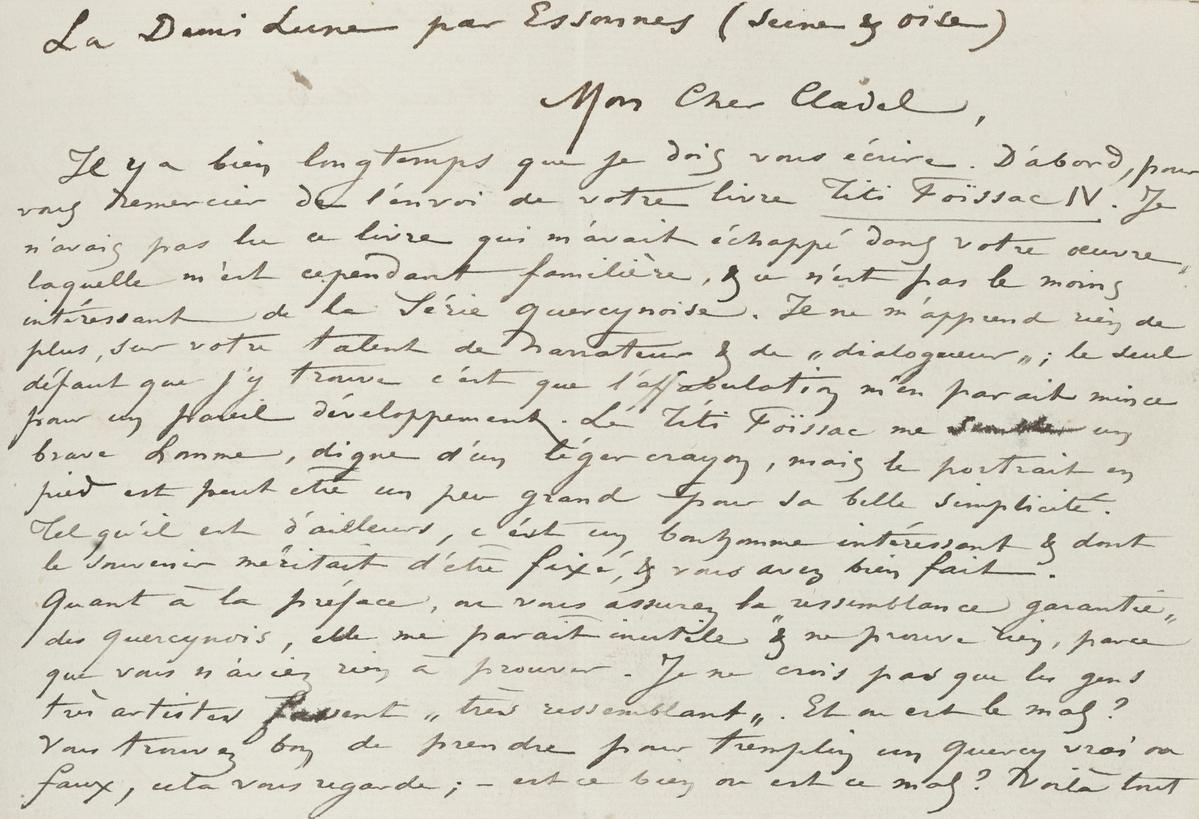 La Demi Lune par Essonnes (Seine & Oise)
Mon Cher Cladel,
Il y a bien longtemps que je dois vous écrire. D'abord, pour
vous remercier de l'envoi de votre livre Titi Foïssac IV. Je
n'avais pas lu ce livre qui m'avait échappé dans votre œuvre,
laquelle m'est cependant familière, & ce n'est pas le moins
intéressant de la Série quercynoise. Il ne m'apprend rien de
plus, sur votre talent de narrateur & de „dialogueur„; le seul
défaut que j'y trouve c'est que l'affabulation m'en parait mince
pour un pareil développement. Le Titi Foïssac me semble un
brave homme, digne d'un léger crayon, mais le portrait en
pied est peut etre un peu grand pour sa belle simplicité.
Tel qu'il est d'ailleurs, c'est un bonhomme intéressant & dont
le souvenir méritait d'être fixé, & vous avez bien fait.
Quant à la préface, ou vous assurez la ressemblance garantie„
des quercynois, elle me parait inutile & ne prouve rien, parce
que vous n'aviez rien à prouver. Je ne crois pas que les gens
très artistes fassent „très ressemblant„. Et ou est le mal?
Vous trouvez bon de prendre pour tremplin un Quercy vrai ou
faux, cela vous regarde; – est ce bien ou est ce mal? Voilà tout